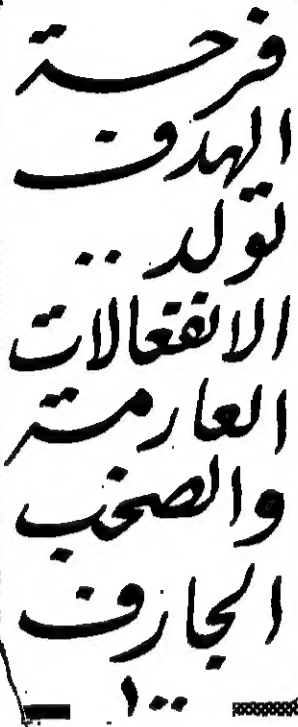 فرحة
الهدف
تولد ..
الانفعالات
العارمة
والصخب
الجارف
١٠٠